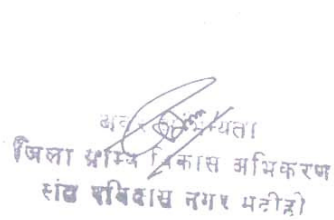 अवर अभियन्ता
जिला ग्राम्य विकास अभिकरण
संत रविदास नगर भदोही